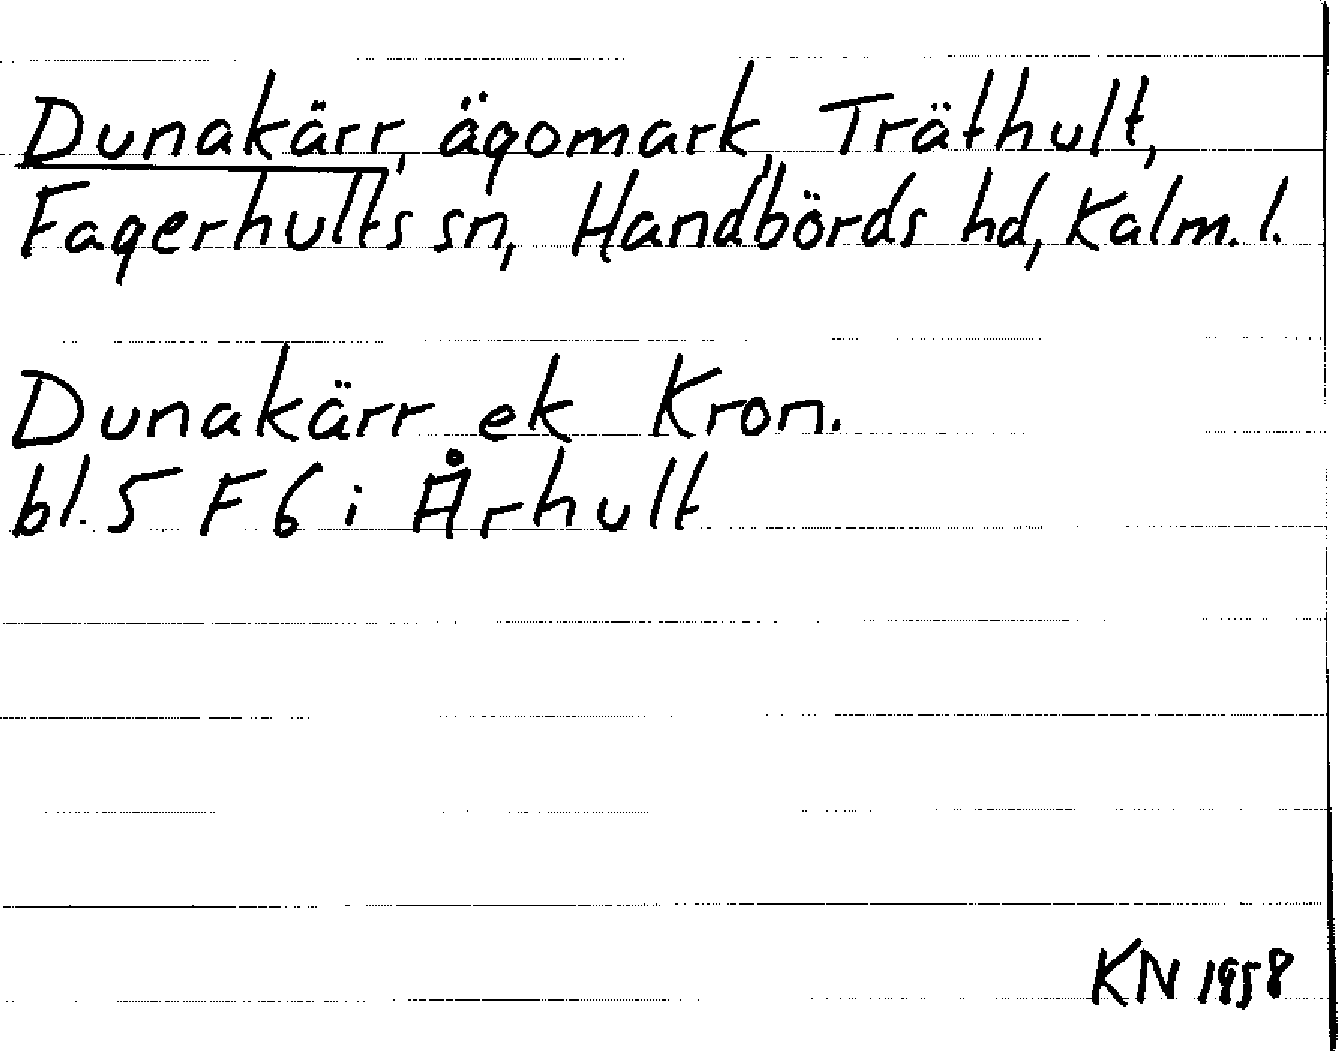 Dunakärr, ägomark, Träthult,
Fagerhults sn, Handbörds hd, Kalm. l.
Dunakärr ek Kron.
bl. 5 F 6 i Århult
KN 1958